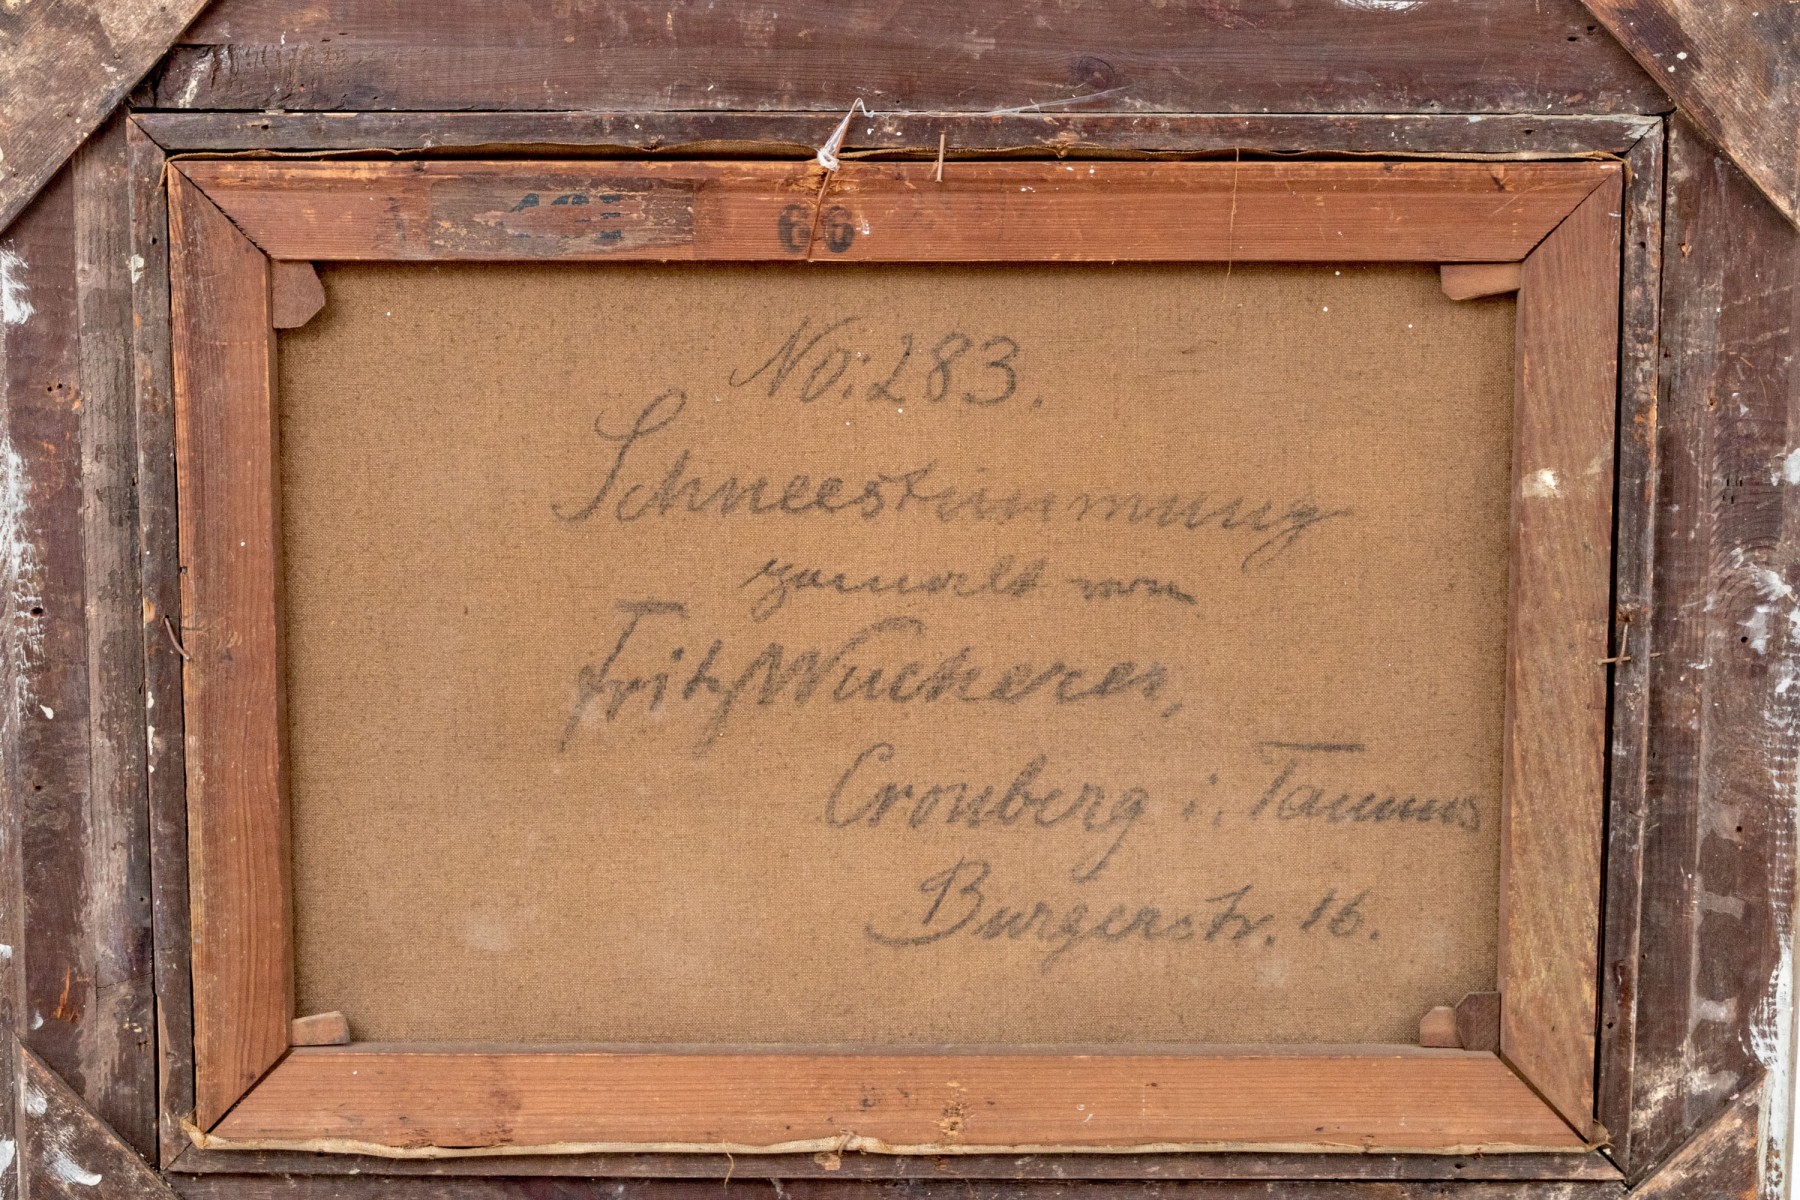 66
No: 283.
Schneestimmung
gemalt von
Fritz Wucherer,
Cronberg i. Taunus
Burgerstr. 16.